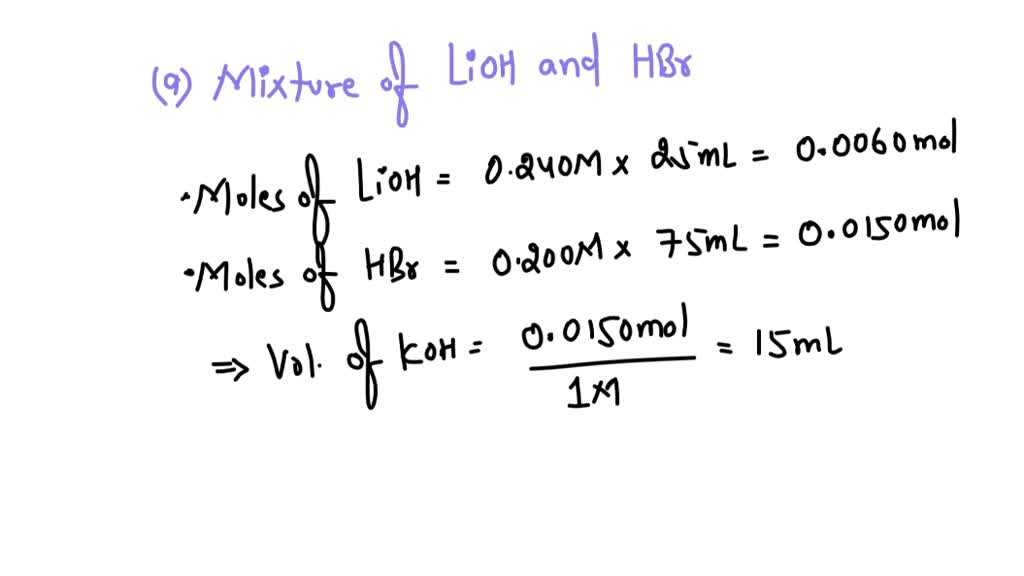 (a) Mixture of LiOH and HBr
• Moles of LiOH = 0.240M × 25mL = 0.0060mol
• Moles of HBr = 0.200M × 75mL = 0.0150mol
⇒ Vol. of KOH = 0.0150mol / 1M = 15mL